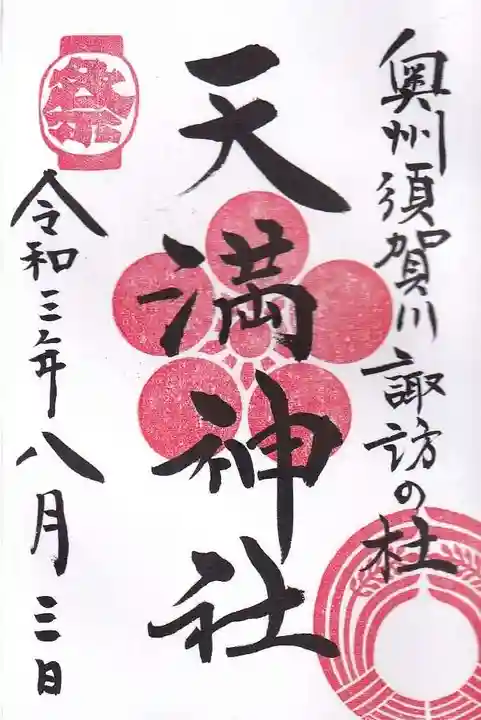 奥州須賀川諏訪の杜
天満神社
祭
令和三年八月三日